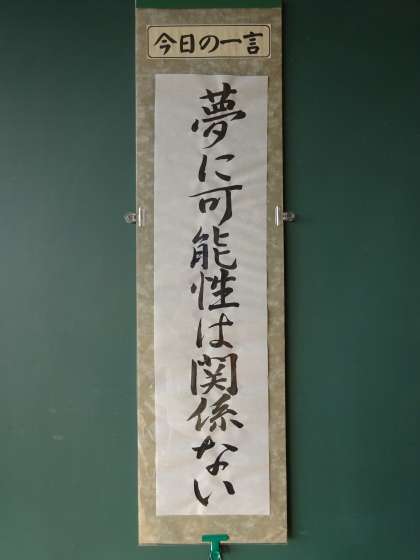 今日の一言
夢に可能性は関係ない